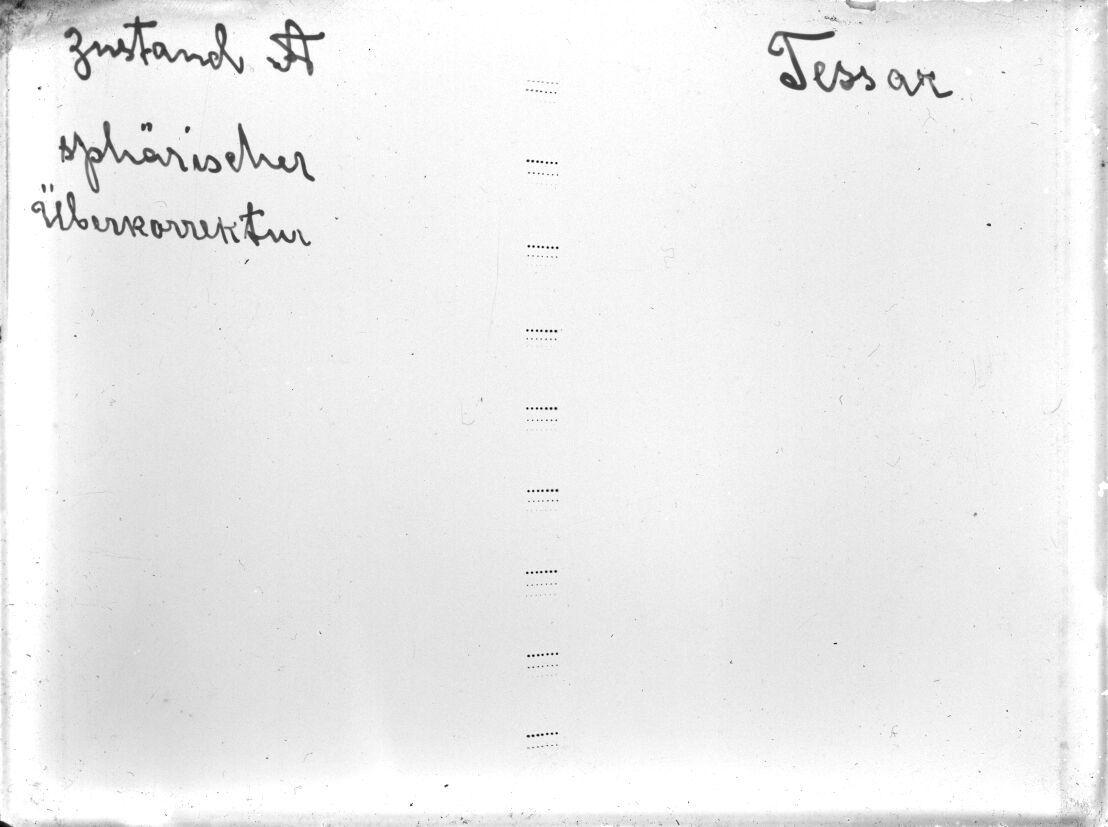 Zustand A
Tessar
sphärischer
Überkorrektur